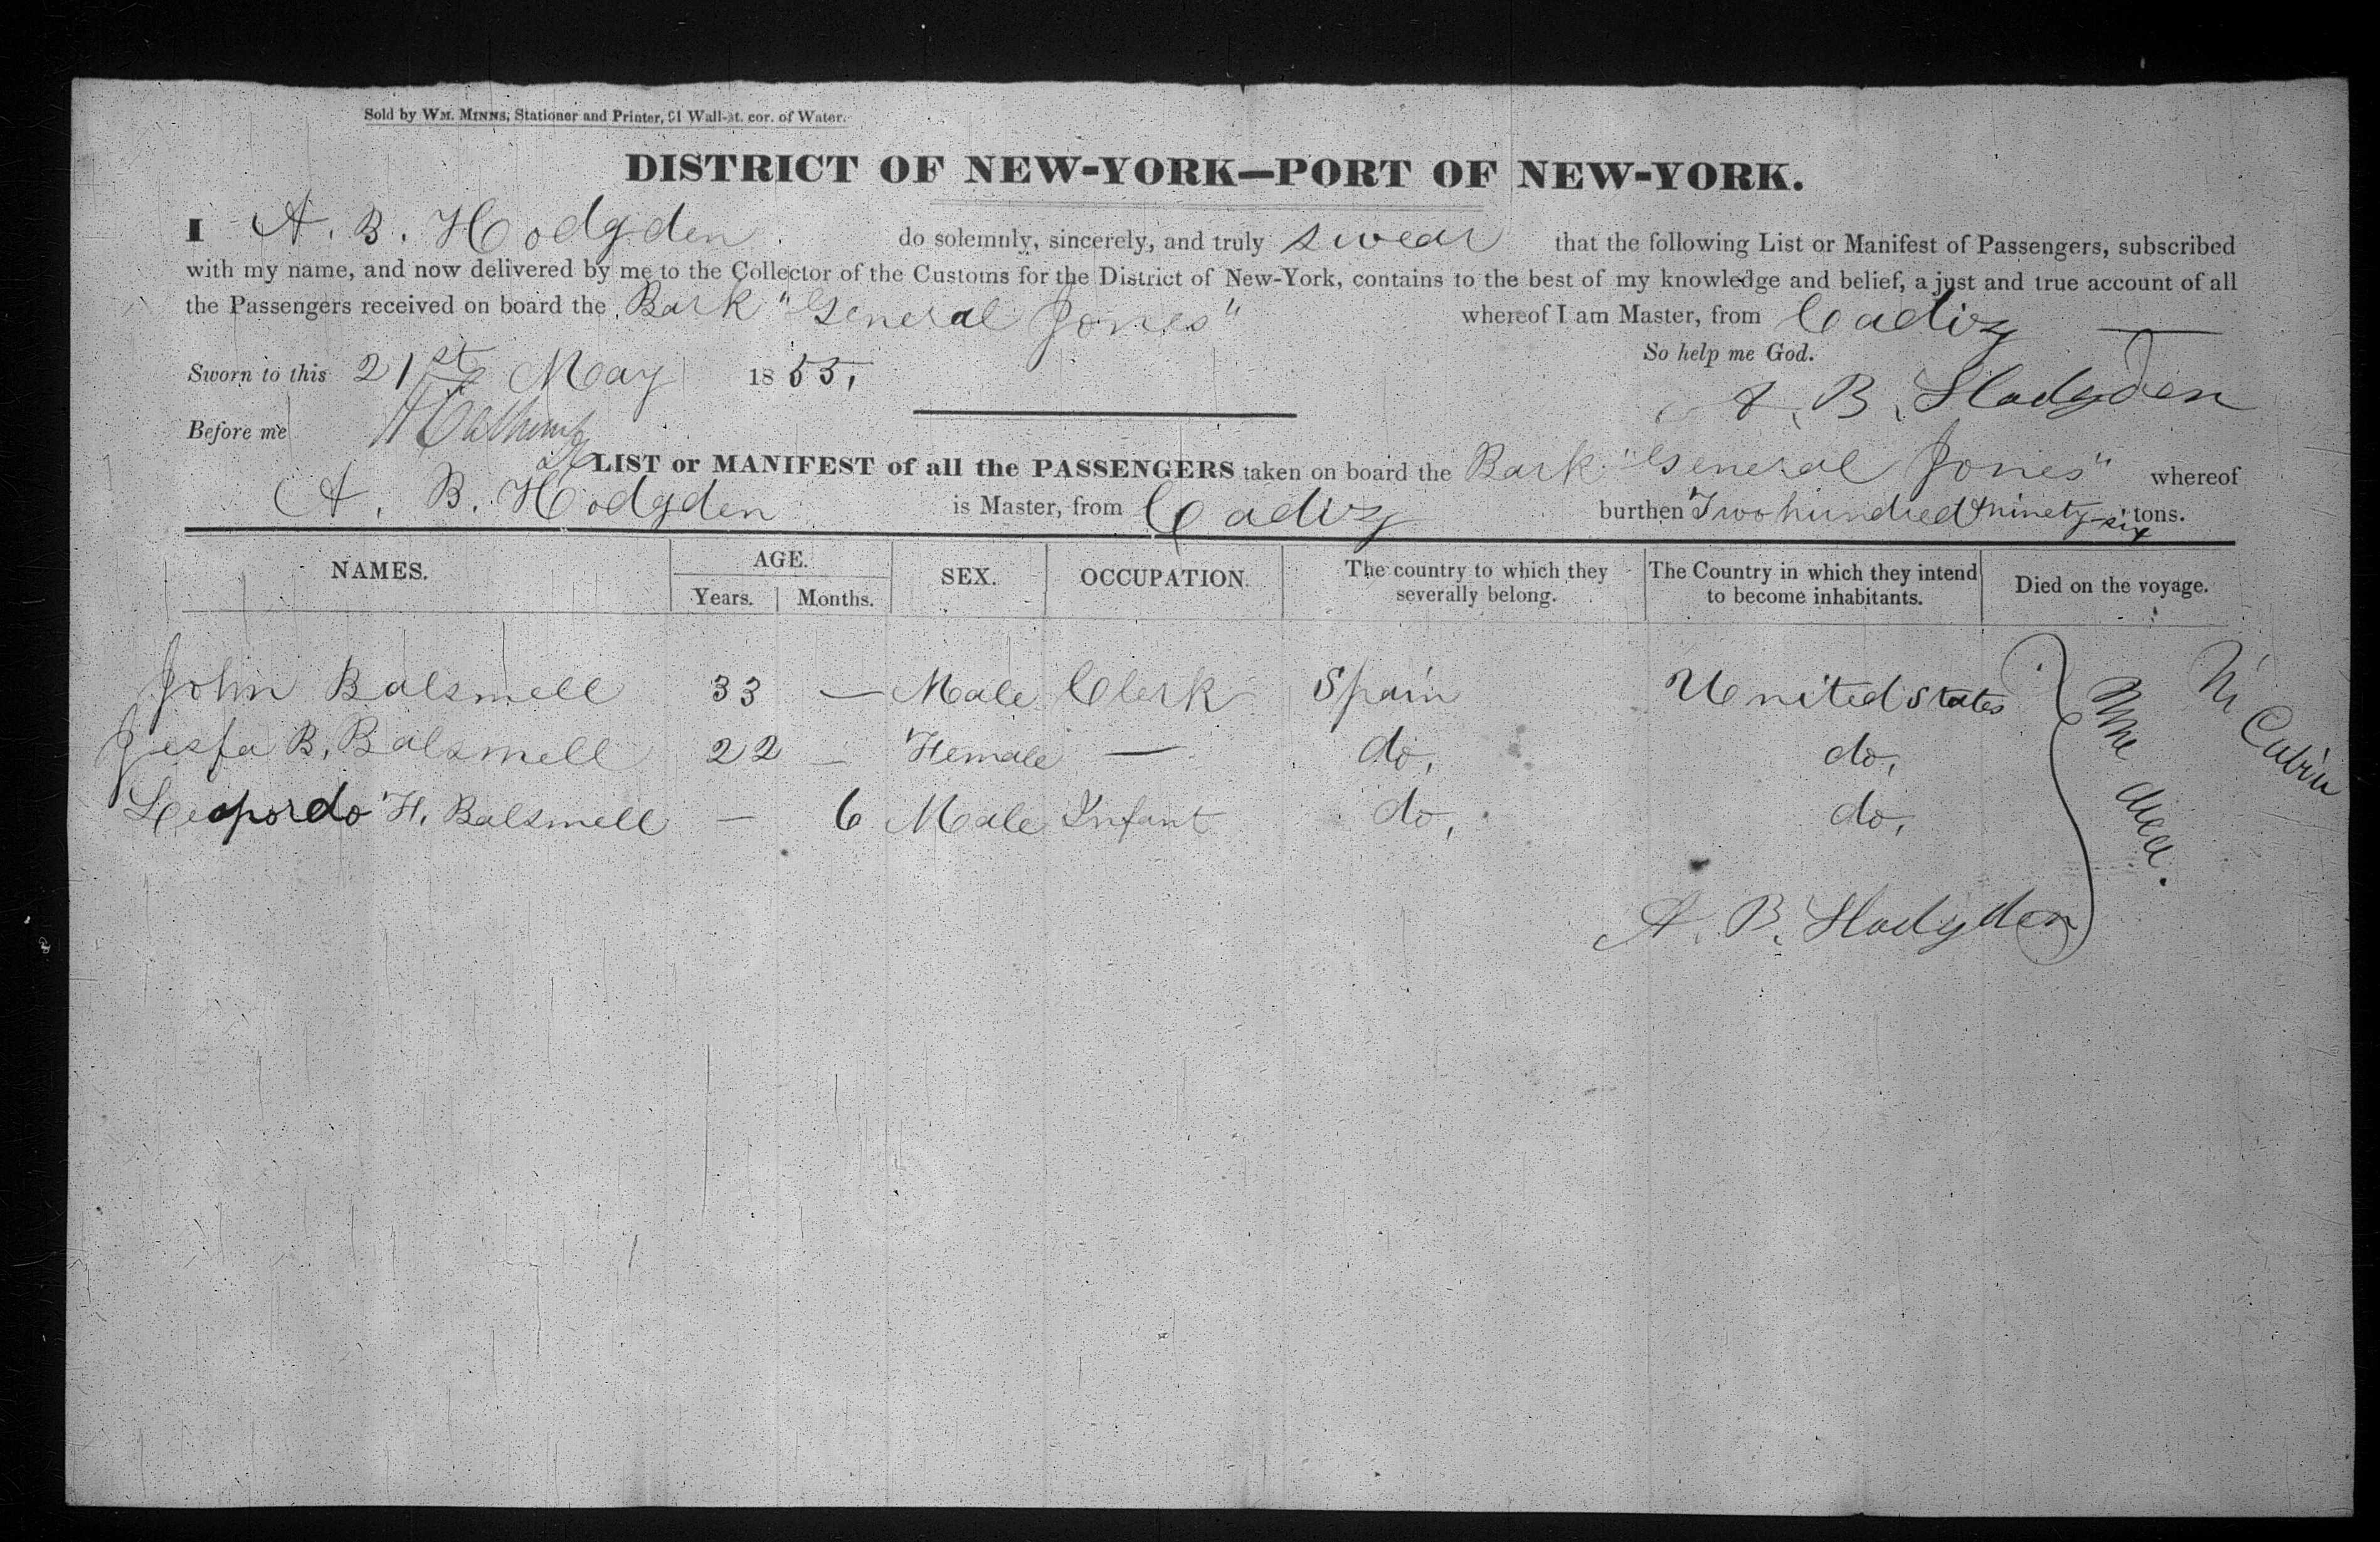 Sold by WM. MINNS, Stationer and Printer, 91 Wall-st. cor. of Water.
DISTRICT OF NEW-YORK—PORT OF NEW-YORK.
I A. B. Hodgden do solemnly, sincerely, and truly swear that the following List or Manifest of Passengers, subscribed
with my name, and now delivered by me to the Collector of the Customs for the District of New-York, contains to the best of my knowledge and belief, a just and true account of all
the Passengers received on board the Bark "General Jones" whereof I am Master, from Cadiz
So help me God.
Sworn to this 21st May 1855,
A. B. Hodgden
Before me
LIST or MANIFEST of all the PASSENGERS taken on board the Bark "General Jones" whereof
A. B. Hodgden is Master, from Cadiz burthen Two hundred & ninety-six tons.
NAMES. AGE. Years. Months. SEX. OCCUPATION. The country to which they severally belong. The Country in which they intend to become inhabitants. Died on the voyage.
John Balsmell 33 — Male Clerk Spain United States
Jesfa B. Balsmell 22 — Female — do, do,
Leopordo H. Balsmell — 6 Male Infant do, do,
None died.
In Cabin
A. B. Hodgden